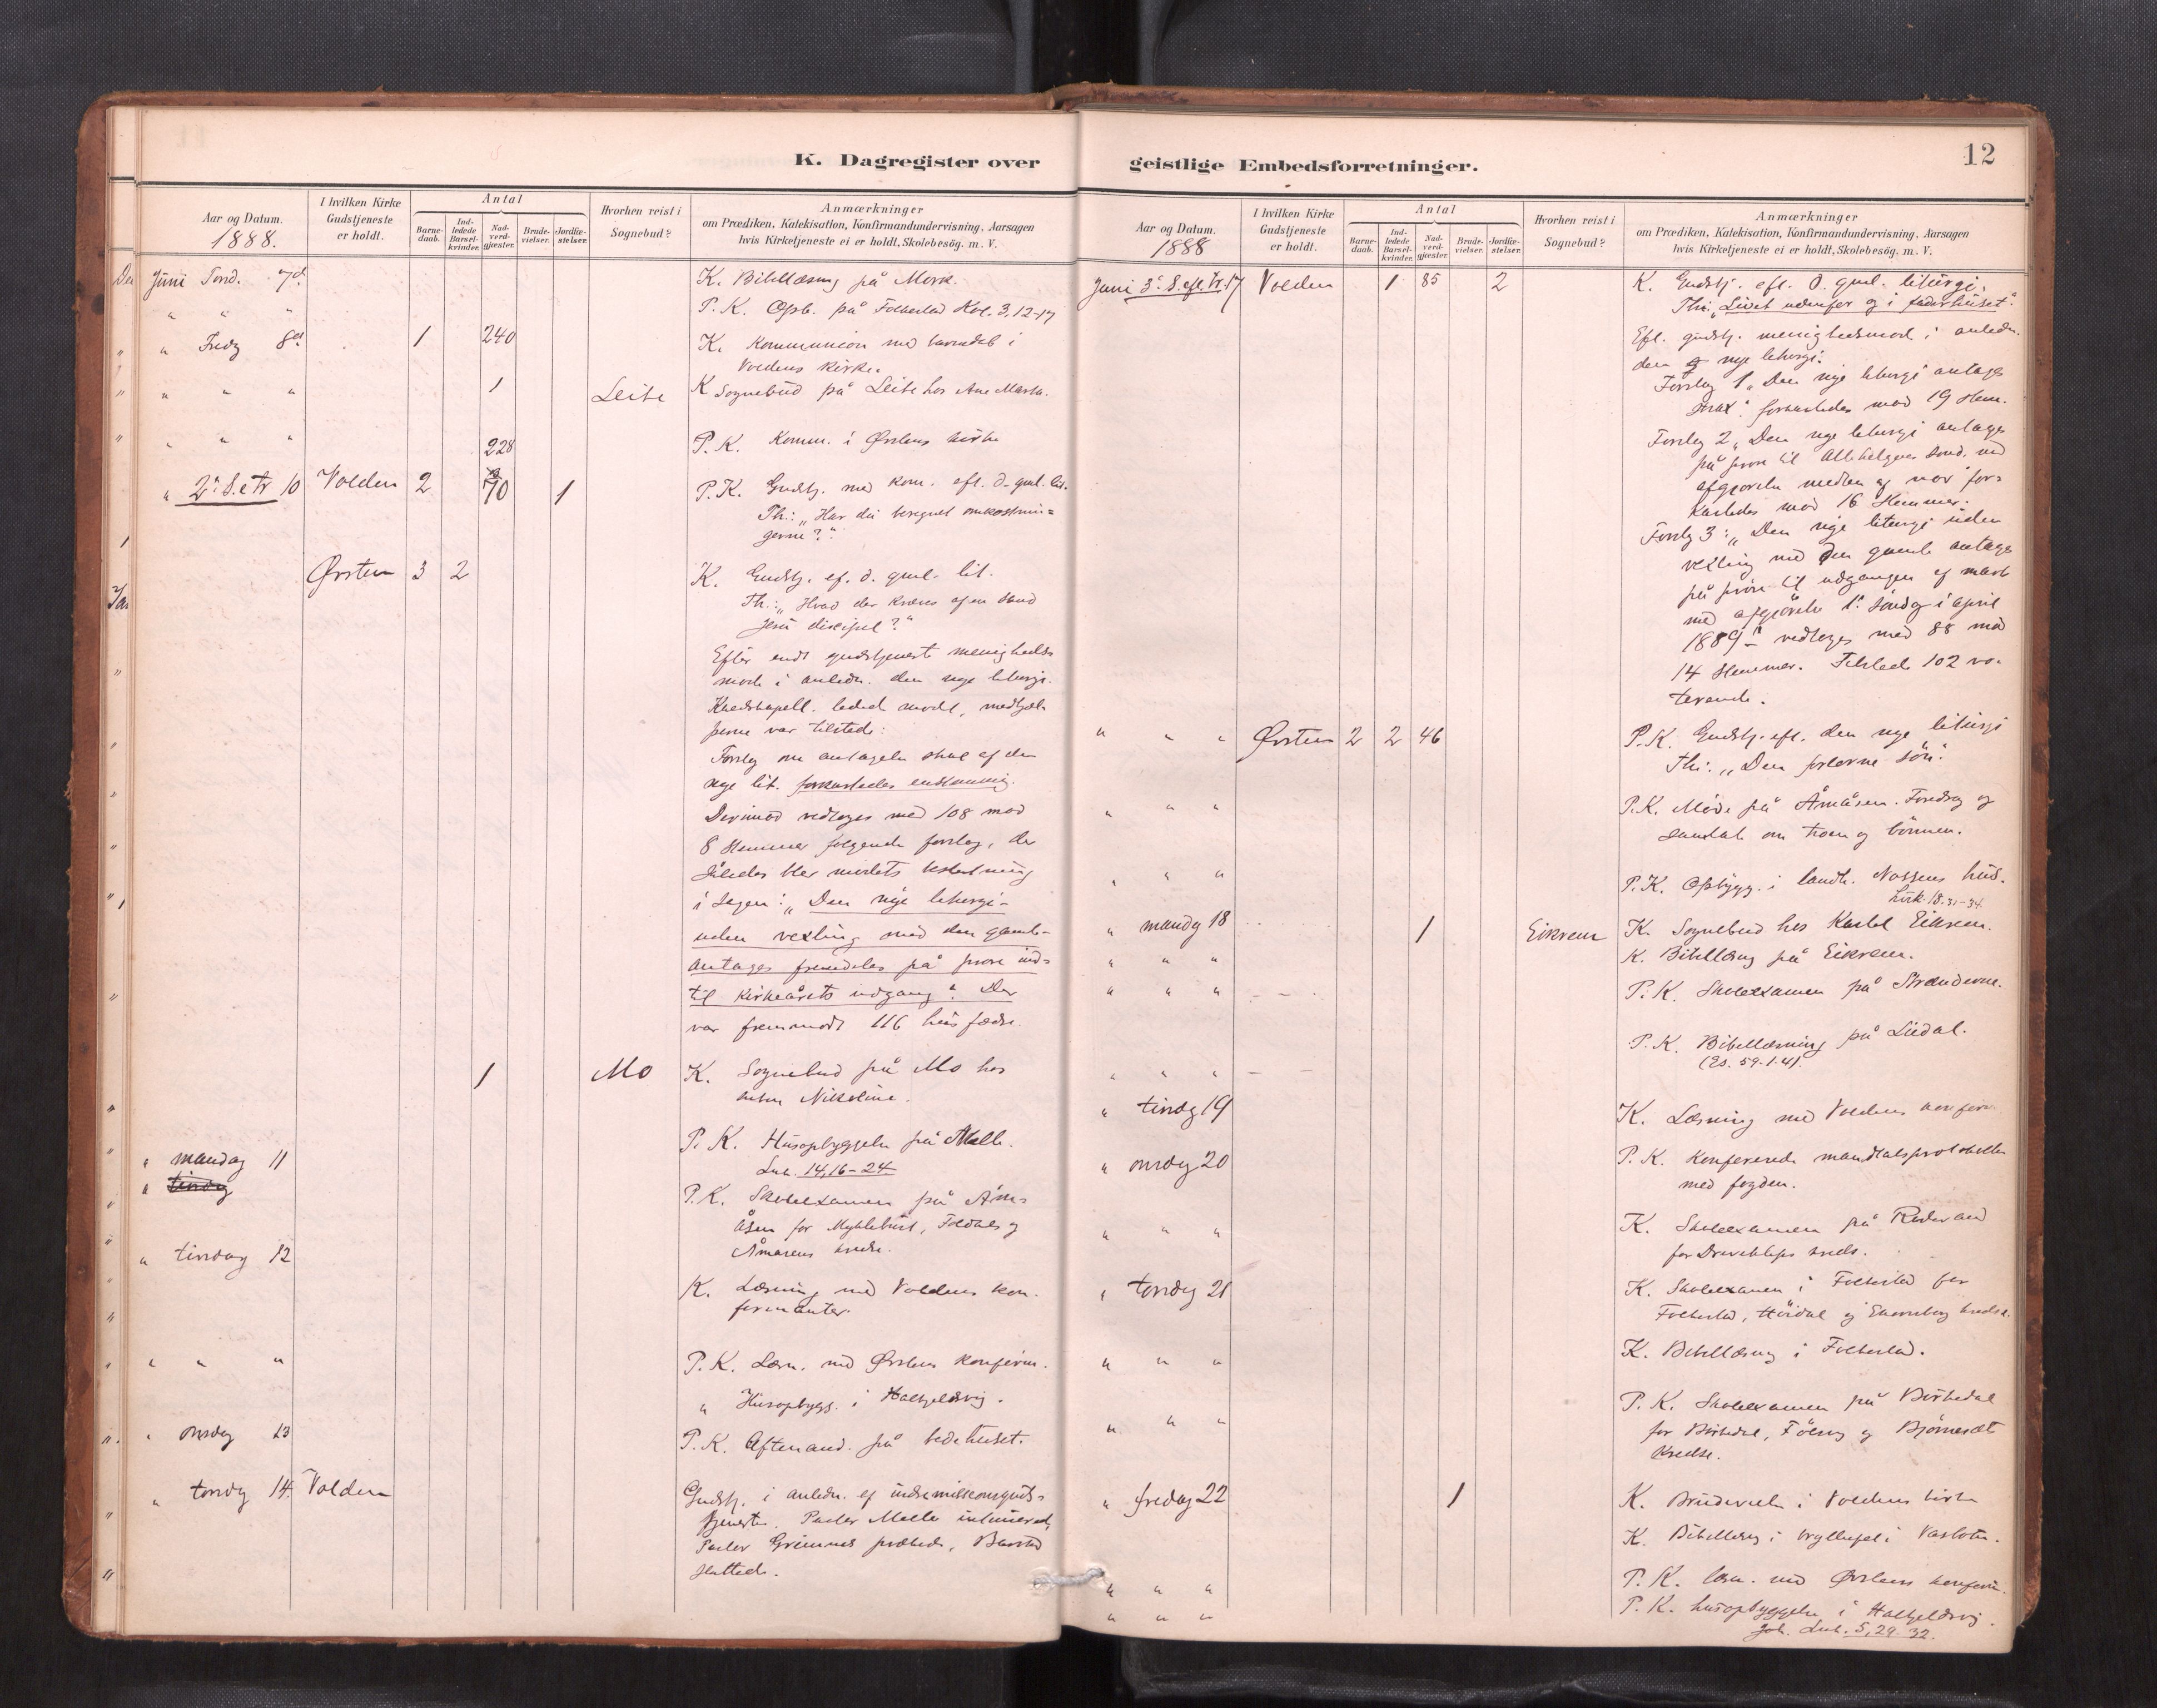 K. Dagregister over
Aar og Datum.
1888.
I hvilken Kirke
Gudstjeneste
er holdt.
Antal
Barne-
daab.
Ind-
ledede
Barsel-
kvinder.
Nad-
verd-
gjæster.
Brude-
vielser.
Jordfæ-
stelser.
Hvorhen reist i
Sognebud?
Anmærkninger
om Prædiken, Katekisation, Konfirmandundervisning, Aarsagen
hvis Kirketjeneste ei er holdt, Skolebesög. m. V.
Juni 7d. K. Bibellæsning på Mork.
" " " P. K. Opb. på Folkestad Kol. 3, 12-17
" Fredag 8de 1 240 K. Kommunion med barnedåb i
Voldens kirke.
" " " 1 Leite K Sognebud på Leite hos Ane Marta.
" " " 228 P. K. Komm. i Ørstens kirke
" 2. S. e tr 10 Volden 2 70 1 P. K. Gudstj. med kom. eft. d. gml. lit.
Th.: „Har du beregnet omkostnin=
gerne?"
Ørsten 3 2 K. Gudstj. ef. d. gml. lit.
Th.: „Hvad der kræves af en
Jesu discipel?"
Efter endt gudstjeneste menigheds
møde i anledn. den nye liturgi.
ledede mødet, medhjæl-
perne var tilstede:
Forslag om antagelse strax af den
nye lit. forkastedes enstemmig.
Derimod vedtoges med 108 mod
8 stemmer følgende forslag, der
således blev mødets beslutning
i sagen: „Den nye liturgi
uden vexling med den gamle
antages fremdeles på prøve ind=
til kirkeårets udgang". Der
var fremmødt 116 husfædre.
1 Mo K. Sognebud på Mo hos
enken Nikoline.
P. K. Husopbyggelse på Melle.
Luk. 14,16-24
" mandag 11 P. K. Skoleexamen på Åm=
åsen for Myklebust, Foldals og
Åmåsens kreds.
" tirsdag 12 K. Læsning med Voldens kon-
firmanter.
" " " P. K. Læsn. med Ørstens konfirm.
" Husopbygg. i Halkjelsvig.
" onsdag 13 P. K. Aftenand. på bedehuset.
" torsdag 14. Volden Gudstj. i anledn. af indremissionsguds-
tjeneste. Pastor Melle
Pastor Grimnes prækede,
sluttede.
geistlige Embedsforretninger.
12
Aar og Datum.
1888
I hvilken Kirke
Gudstjeneste
er holdt.
Antal
Barne-
daab.
Ind-
ledede
Barsel-
kvinder.
Nad-
verd-
gjæster.
Brude-
vielser.
Jordfæ-
stelser.
Hvorhen reist i
Sognebud?
Anmærkninger
om Prædiken, Katekisation, Konfirmandundervisning, Aarsagen
hvis Kirketjeneste ei er holdt, Skolebesög. m. V.
Juni 3. S. eft. tr. 17 Volden 1 85 2 K. Gudstj. eft. d. gml. liturgi.
Th: „Livet udenfor og i faderhuset".
Eft. gudstj. menighedsmøde i anledn.
den nye liturgi:
Forslag 1 „Den nye liturgi antages
strax". forkastedes mod 19 stem.
Forslag 2 „Den nye liturgi antages
på prøve til Allehelgens sønd. med
afgjørelse mellem og nov for=
kastedes mod 16 stemmer.
Forslag 3: „Den nye liturgi uden
vexling med den gamle antages
på prøve til udgangen af marts
med afgjørelse 1. søndag i april
1889" vedtoges med 88 mod
14 stemmer. Tilstede 102 vo-
terende.
" " " Ørsten 2 2 46 P. K. Gudstj. eft. den nye liturgi
Th: „Den fortorne søn".
" " " P. K. Møde på Åmåsen. Foredrag og
samtale om troen og bønnen.
" " " P. K. Opbygg. i landh. Nossens hus.
Luk. 18. 31-34.
" mandag 18 1 Eikrem K. Sognebud hos Eikrem.
" " " K. Bibellæsng på Eikrem.
" " " P. K. Skoleexamen på Strandene.
" " " P. K. Bibellæsning på Liedal.
(Es. 59. 1. 4).
" tirsdag 19 K. Læsning med Voldens konfirm
" onsdag 20 P. K. Konfererede mandtalsprotokollen
med fogden.
" " " K. Skoleexamen på Rotevand
for Dravekleps kreds.
" torsdag 21 K. Skoleexamen i Folkestad for
Folkestad, Høidal og kredse.
" " " K. Bibellæsng i Folkestad.
" " " P. K. Skoleexamen på Birkedal
for Birkedal, og Bjørnesæt
kredse.
" fredag 22 1 K. Brudevielse i Voldens kirke
K. Bibellæsng i
" " " P. K. læsn. med Ørstens konfirm.
" " " P. K. husopbyggelse i Halkjelsvig.
Luk. 5, 29-32.